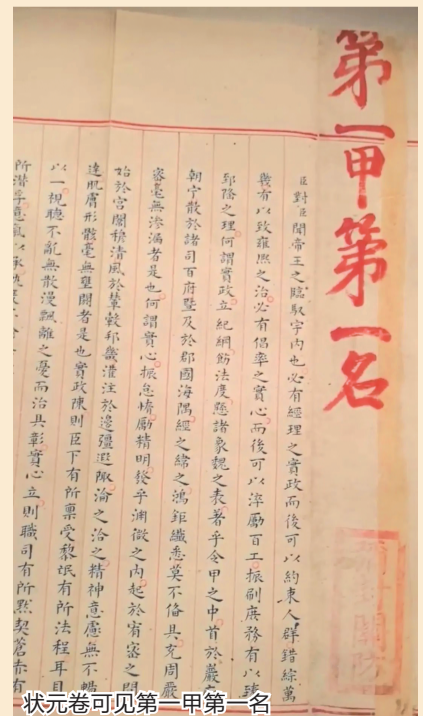 第一甲第一名
臣對臣聞帝王之臨馭宇內也必有經理之實政而後可以約束人群錯綜萬
幾有以致雍熙之治必有倡率之實心而後可以淬勵百工振刷庶務有以臻
郅隆之理何謂實政立紀綱飭法度懸諸象魏之表著乎令甲之中首於嚴
朝宁散於諸司百府暨及於郡國海隅經之緯之鴻鉅纖悉莫不偹具充周嚴
審毫無滲漏者是也何謂實心振怠惰勵精明發乎淵微之內起於宥密之間
始於宮闈穆清風於輦轂邦畿灌注於邊疆遐陬淪之洽之精神意慮無不暢
達肌膚形骸毫無壅閼者是也實政陳則臣下有所稟受黎氓有所法程耳目
以一視聽不亂無散漫飄離之憂而治具彰實心立則職司有所默契蒼赤有
所潛孚意氣以承軌度
状元卷可见第一甲第一名